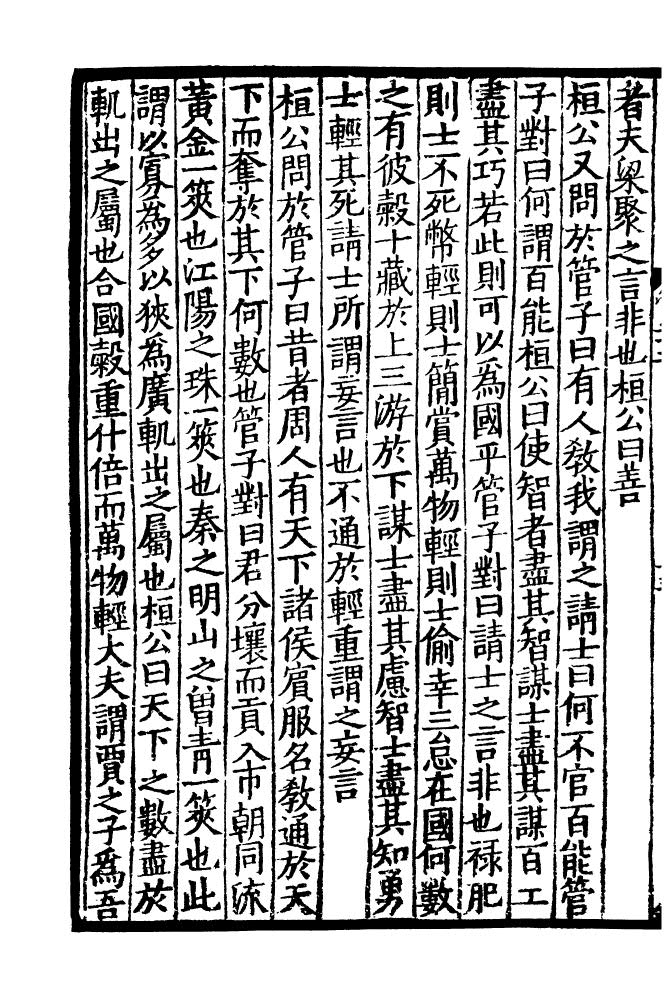 者夫梁聚之言非也桓公曰善
桓公又問於管子曰有人教我謂之請士曰何不官百能管
子對曰何謂百能桓公曰使智者盡其智謀士盡其謀百工
盡其巧若此則可以爲國乎管子對曰請士之言非也祿肥
則士不死幣輕則士簡賞萬物輕則士偷幸三怠在國何數
之有彼糓十藏於上三游於下謀士盡其慮智士盡其知勇
士輕其死請士所謂妄言也不通於輕重謂之妄言
桓公問於管子曰昔者周人有天下諸侯賓服名教通於天
下而奪於其下何數也管子對曰君分壤而貢入市朝同流
黃金一筴也江陽之珠一筴也秦之明山之曾青一筴也此
謂以寡爲多以狹爲廣軌出之屬也桓公曰天下之數盡於
軌出之屬也合國糓重什倍而萬物輕大夫謂賈之子爲吾